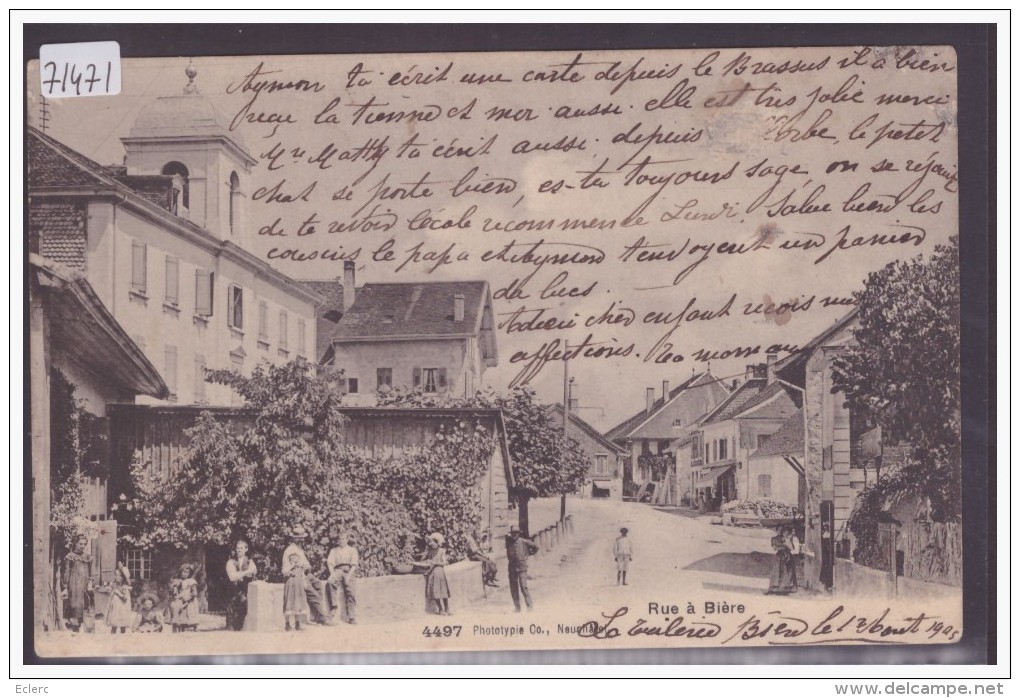 71471
Aymon tu écrit une carte depuis le Brassus il a bien
reçu la tienne et moi aussi. elle est très jolie merci
Mr Matthy tu écrit aussi. depuis Orbe, le petit
chat se porte bien, es-tu toujours sage on se réjouit
de te revoir l'école recommence Lundi Salue bien les
cousins le papa et Aymon t'envoyent un panier
de becs.
Adieu cher enfant reçois nos
affections. ta maman
Rue à Bière
4497 Phototypie Co., Neuchâtel
La Tuilerie Bière le 12 Août 1905
Eclerc
www.delcampe.net